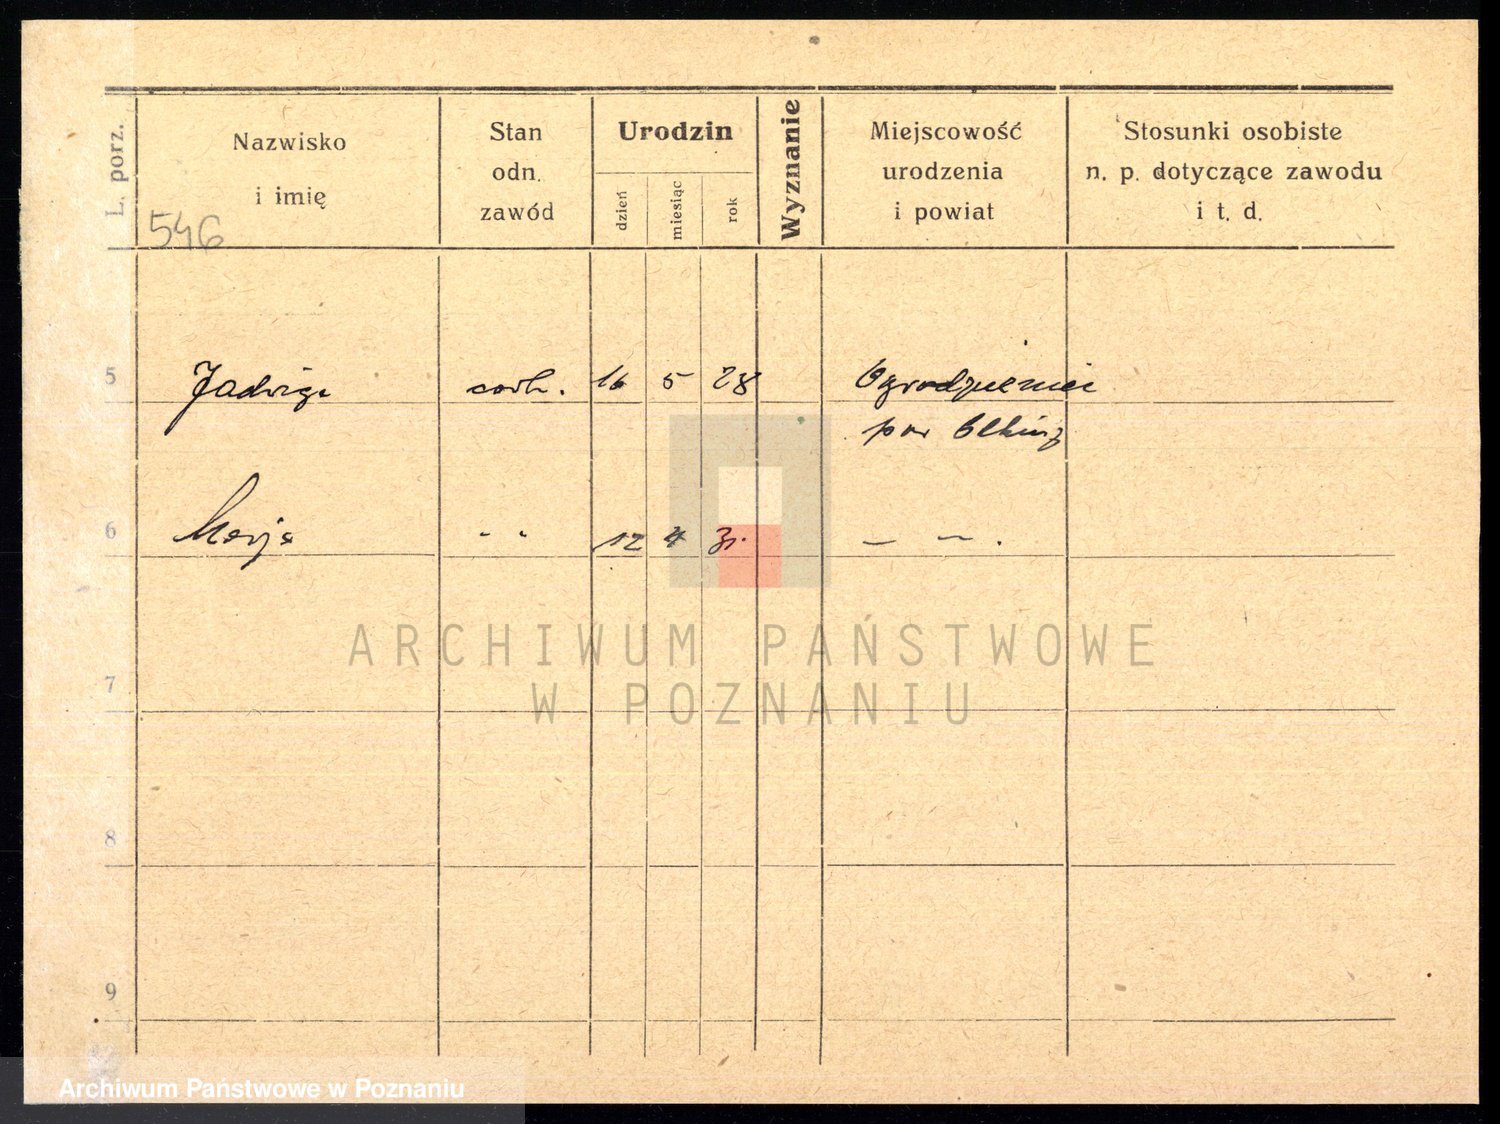 L. porz.
Nazwisko
i imię
546
Stan
odn.
zawód
Urodzin
dzień
miesiąc
rok
Wyznanie
Miejscowość
urodzenia
i powiat
Stosunki osobiste
n. p. dotyczące zawodu
i t. d.
5 Jadwiga córk. 16 5 28 Ogrodzieniec
pow Olkusz
6 Marja " " 12 4 31. — — .
7
8
9
ARCHIWUM PAŃSTWOWE
W POZNANIU
Archiwum Państwowe w Poznaniu